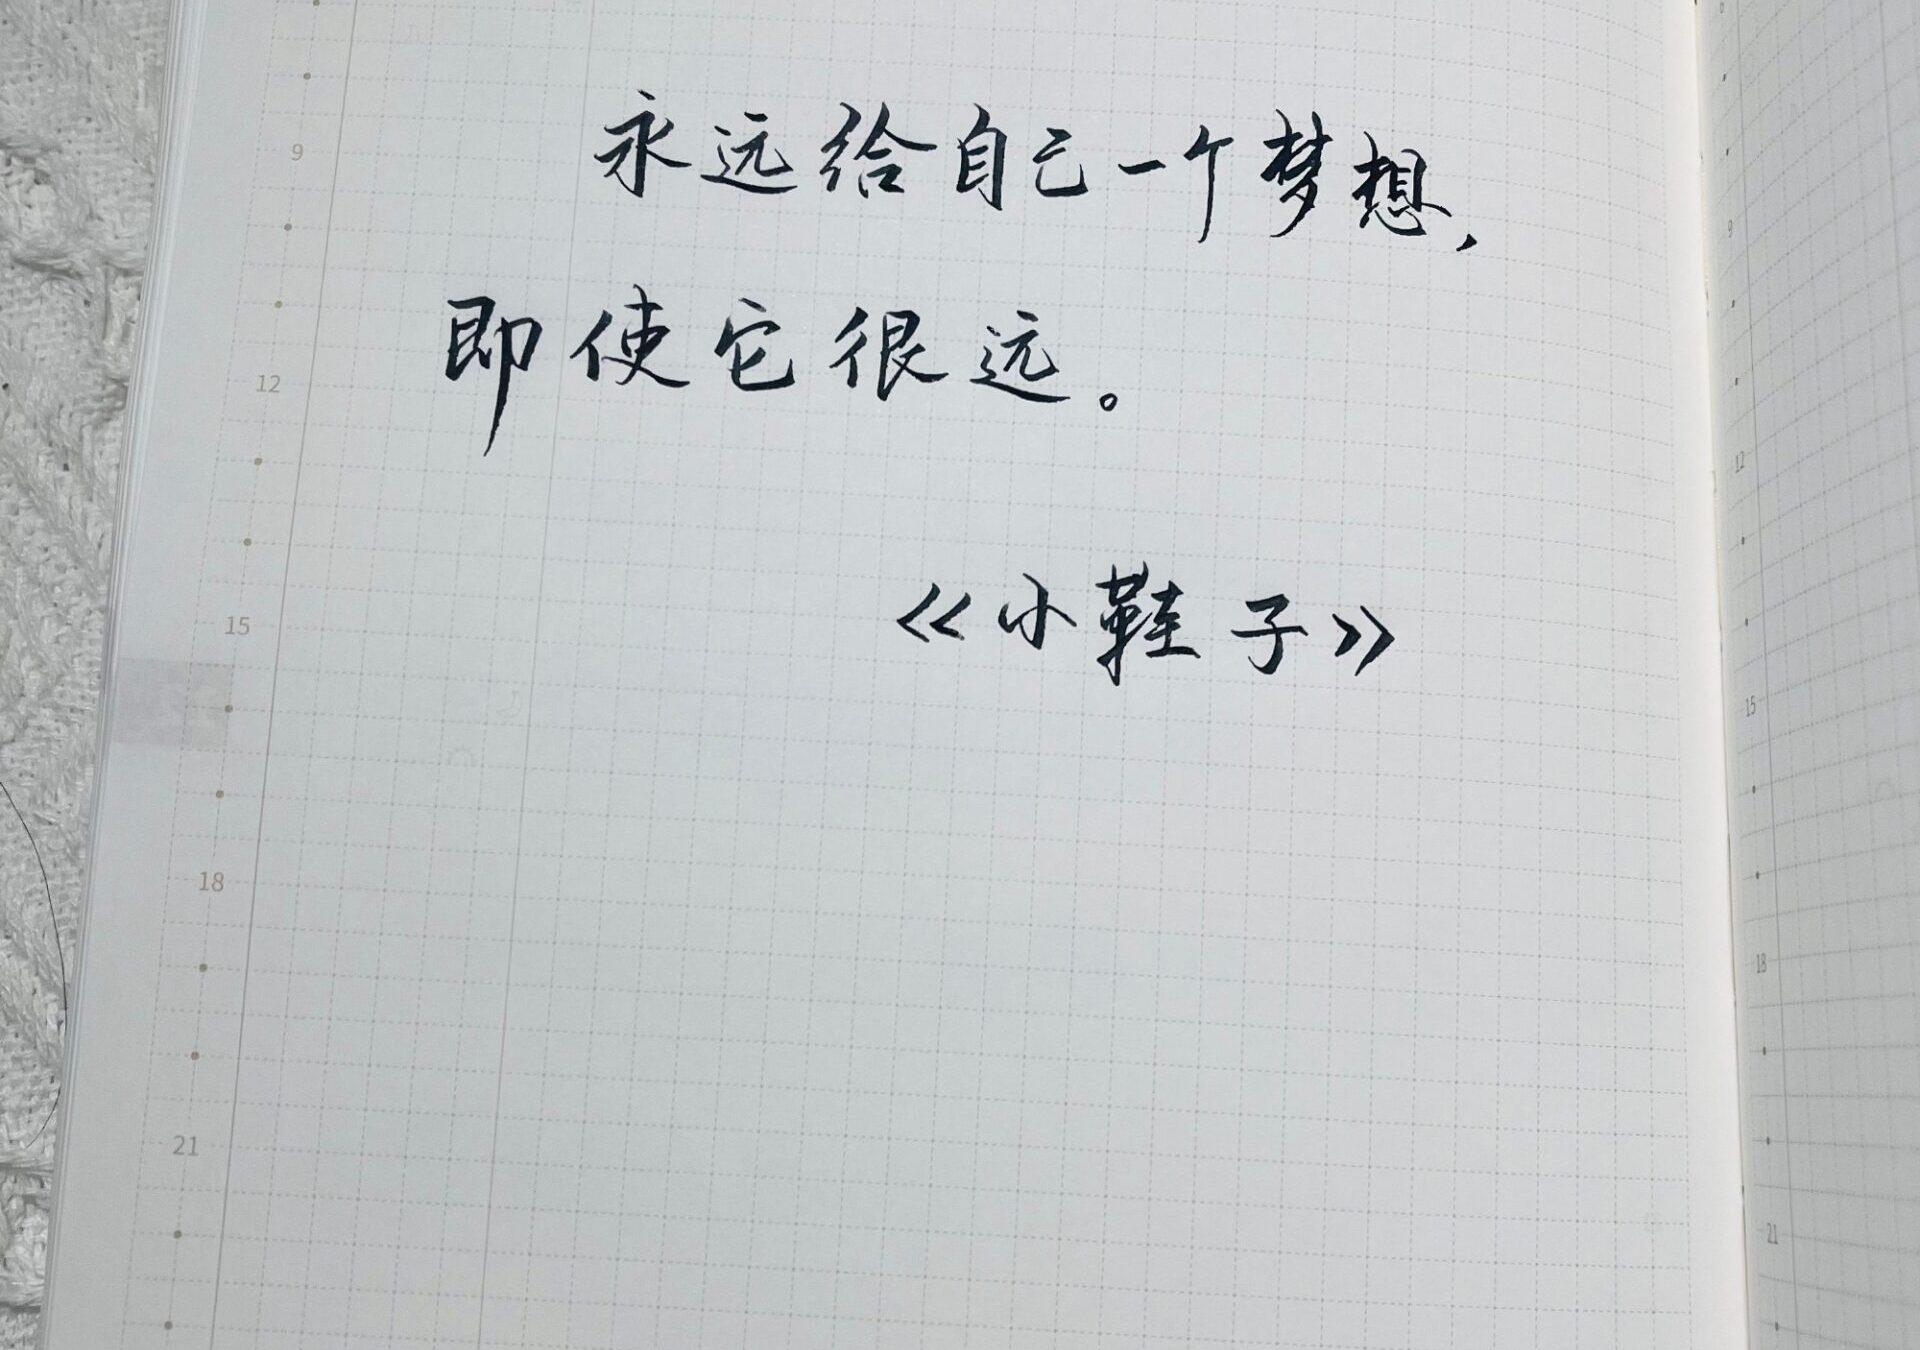 永远给自己一个梦想,
即使它很远。
《小鞋子》
9
12
15
18
21
9
12
15
18
21